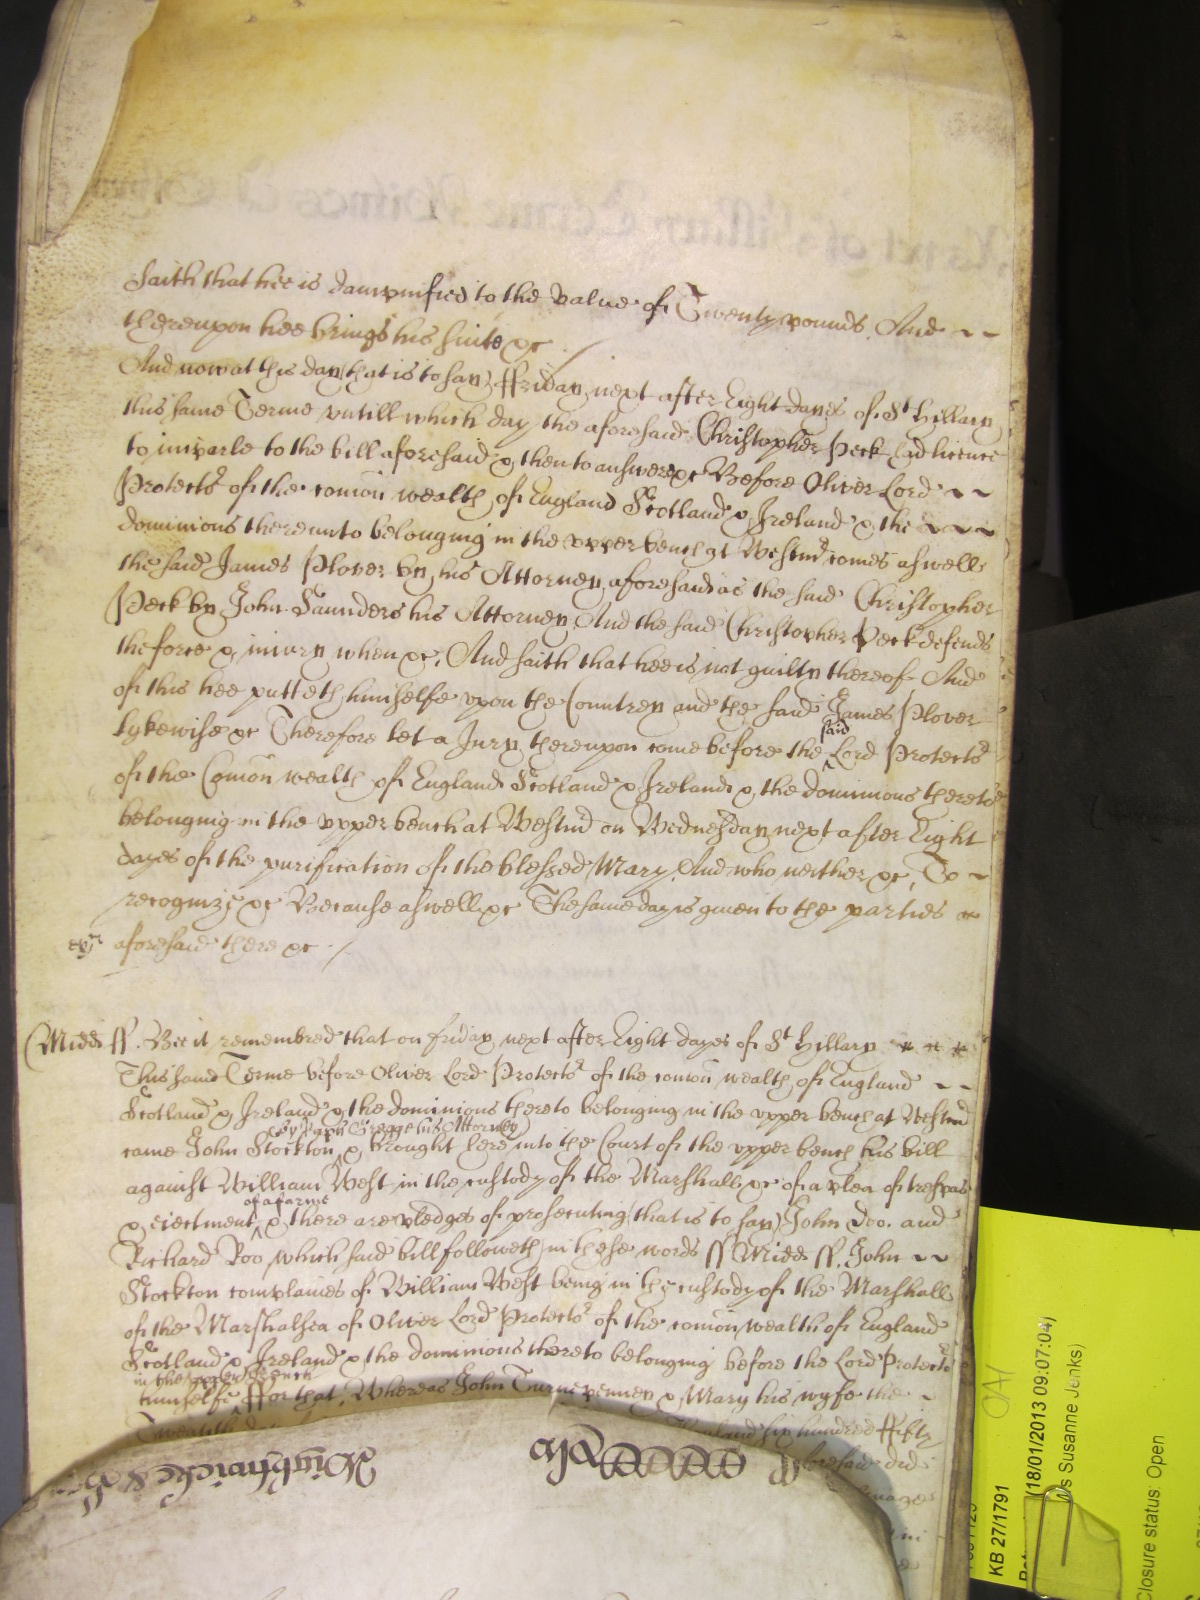 saith that hee is dampnified to the value of Twenty pounds. And
thereupon hee brings his suite &c
And now at this day (that is to say) ffriday next after Eight dayes of St Hillary
this same Terme untill which day the aforesaid Christopher Peck had licence
to imparle to the bill aforesaid & then to answere &c Before Oliver Lord
Protector of the comon wealth of England Scotland & Ireland & the
dominions thereunto belonging in the upper bench at Westmr comes aswell
the said James Plover by his Attorney aforesaid as the said Christopher
Peck by John Saunders his Attorney And the said Christopher Peck defends
the force & iniury when &c. And saith that hee is not guilty thereof And
of this hee putteth himselfe upon the Countrey and the said James Plover
lykewise &c Therefore let a Jury thereupon come before the said Lord Protector
of the Comon wealth of England Scotland & Ireland & the dominions thereto
belonging in the upper bench at Westmr on Wednesday next after Eight
dayes of the purification of the blessed Mary And who neither &c. To
recognize &c Because aswell &c The same day is given to the parties
aforesaid there &c
Midd ss. Bee it remembred that on friday next after Eight dayes of St Hillary
This same Terme before Oliver Lord Protector of the comon wealth of England
Scotland & Ireland & the dominions thereto belonging in the upper bench at Westmr
came John Stockton by Gregge his Attorney & brought here into the Court of the upper bench his bill
against William West in the custody of the Marshall &c of a plea of trespas
& eiectment of a farme & there are pledges of prosecuting (that is to say) John Doo. and
Richard Roo which said bill followeth in these words ss Midd ss. John
Stockton complaines of William West being in the custody of the Marshall
of the Marshalsea of Oliver Lord Protector of the comon wealth of England
Scotland & Ireland & the dominions thereto belonging before the Lord Protector
himselfe in the upper bench ffor that Whereas John Turnepenney & Mary his wyfe the
Twentith six hundred ffifty
aforesaid did
KB 27/1791
(18/01/2013 09:07:04)
s Susanne Jenks)
Closure status: Open